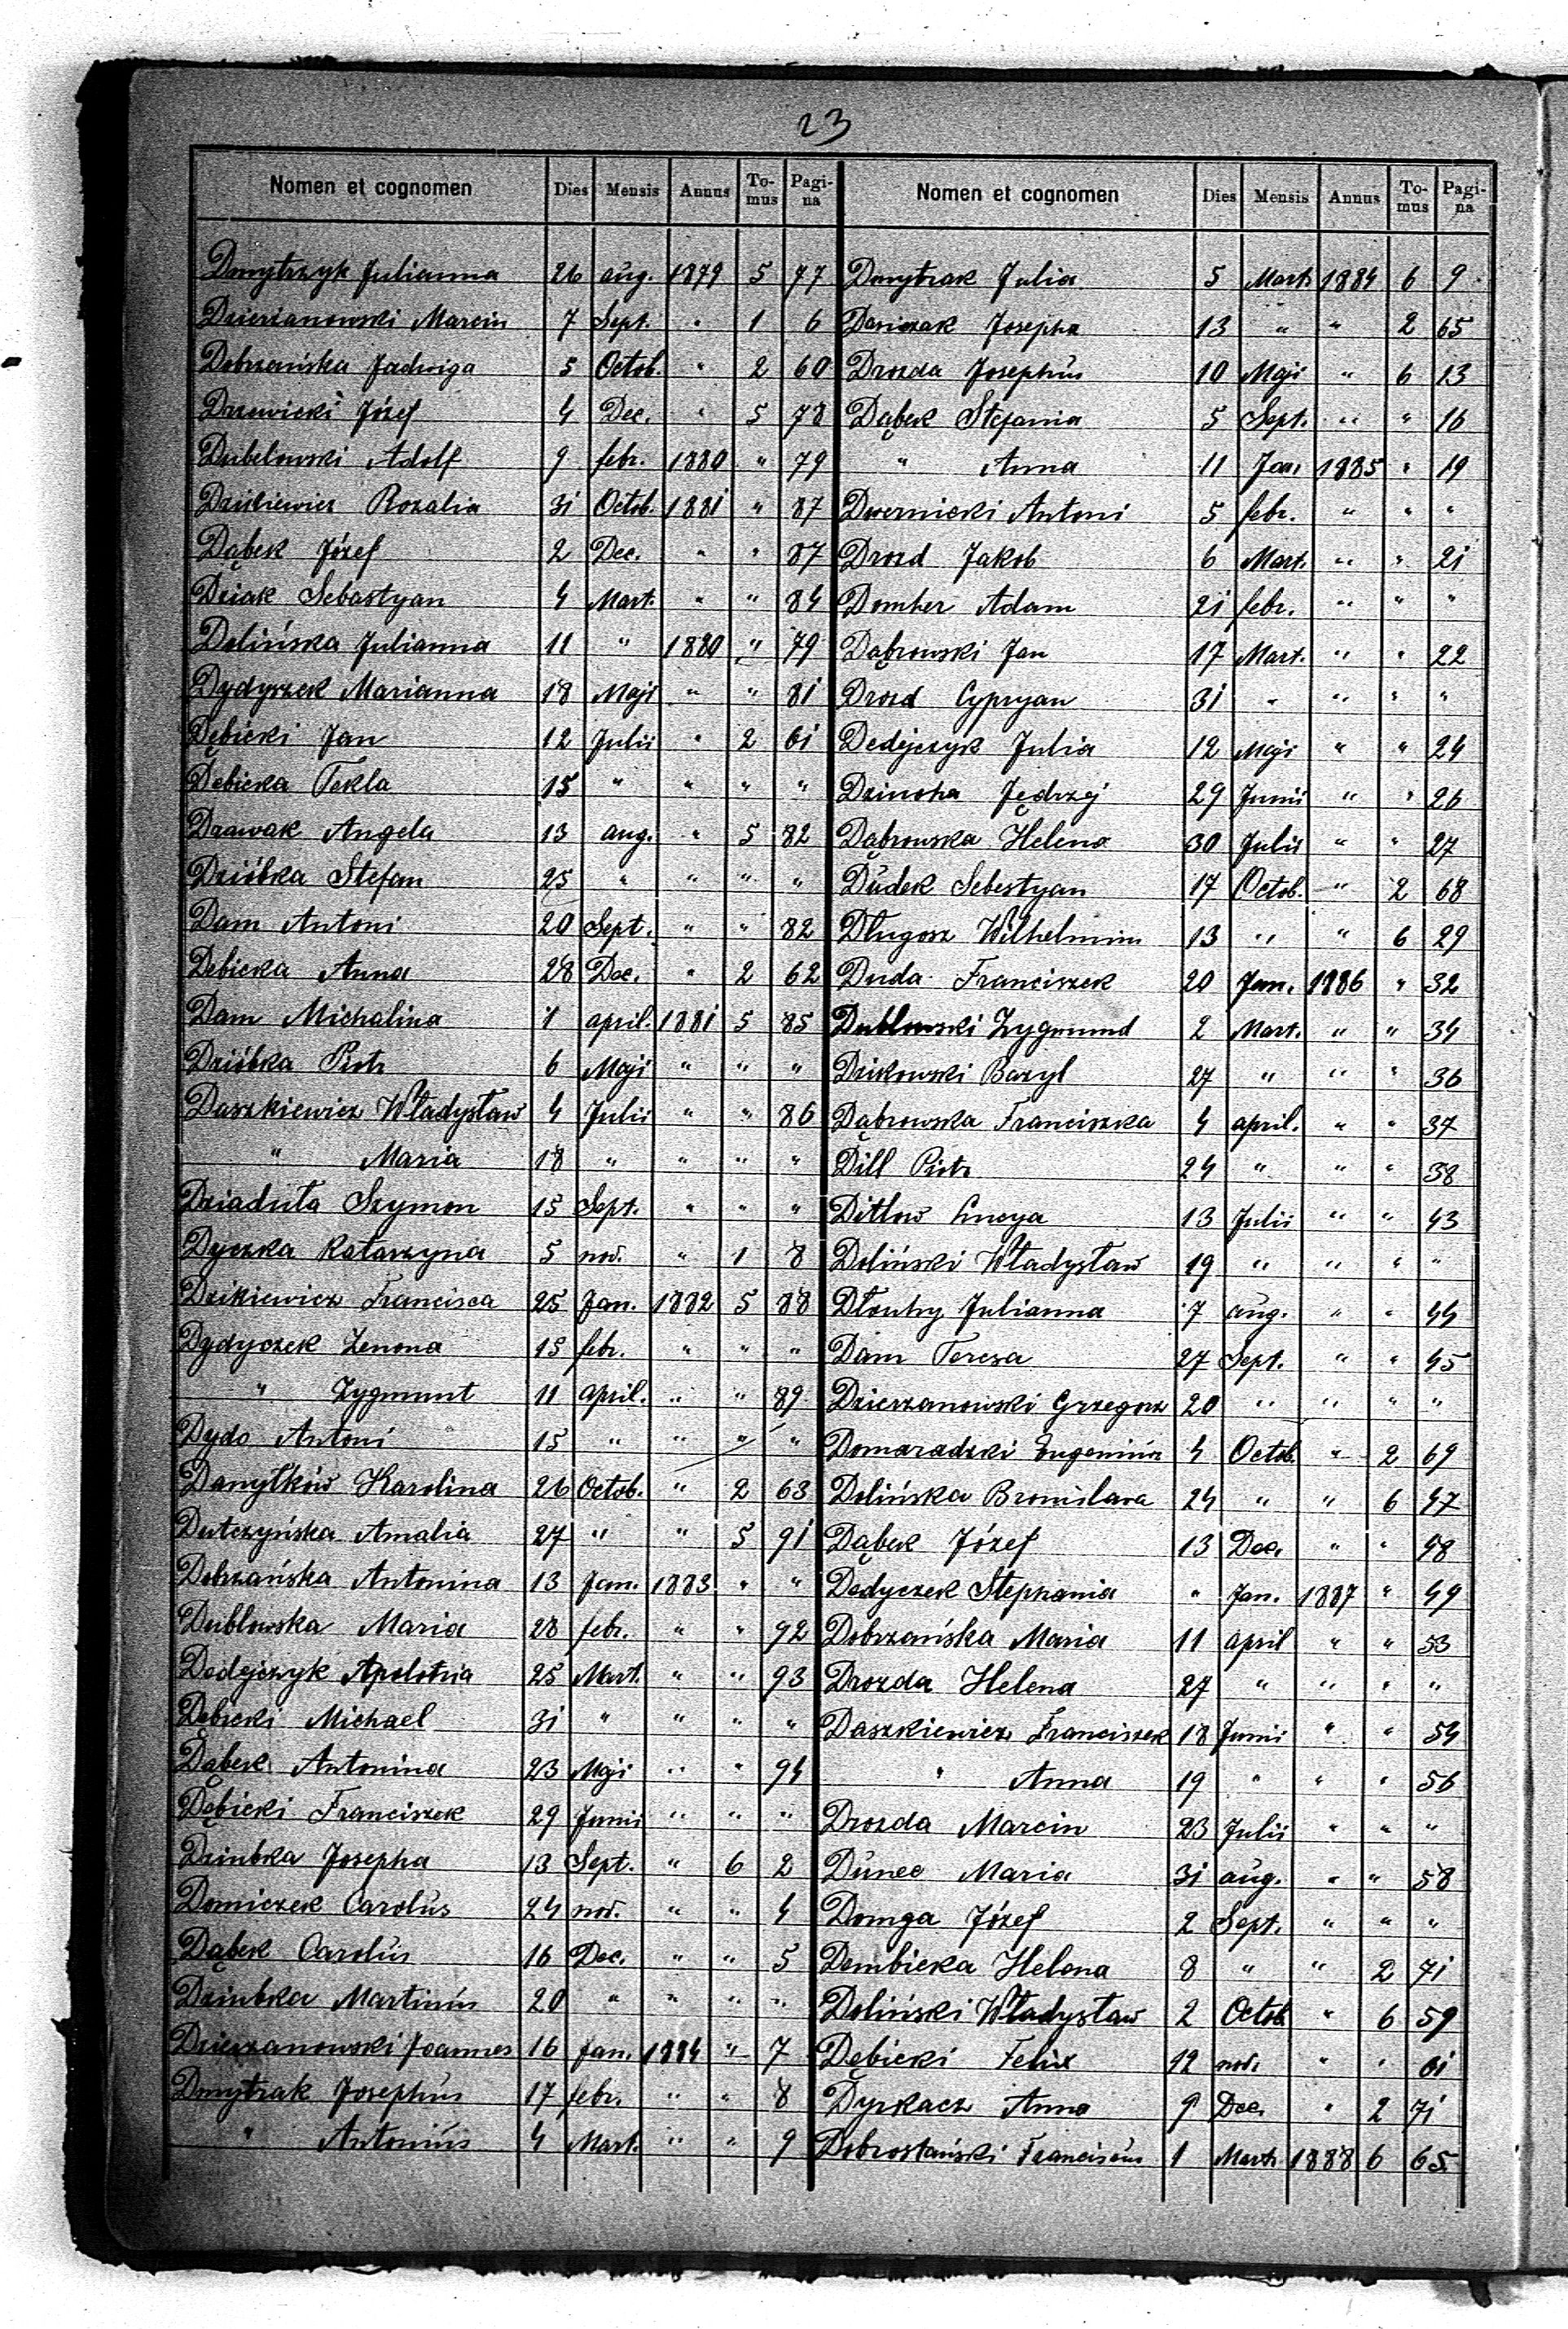 23
Nomen et cognomen Dies Mensis Annus To-mus Pagi-na
Dmytrzyk Julianna 26 aug. 1879 5 77
Dzierżanowski Marcin 7 Sept. " 1 6
Dobrzańska Jadwiga 5 Octob. " 2 60
Drzewicki Józef 4 Dec. " 5 78
Dubelowski Adolf 9 febr. 1880 " 79
Dzikiewicz Rozalia 31 Octob. 1881 " 87
Dąbek Józef 2 Dec. " " 87
Dziak Sebastyan 4 Mart. " " 84
Dolińska Julianna 11 " 1880 " 79
Dydyszek Marianna 18 Maji " " 81
Dębicki Jan 12 Julii " 2 61
Dębicka Tekla 15 " " " "
Drawak Angela 13 aug. " 5 82
Dzióbka Stefan 25 " " " "
Dam Antoni 20 Sept. " " 82
Debicka Anna 28 Dec. " 2 62
Dam Michalina 1 april. 1881 5 85
Dzióbka Piotr 6 Maji " " "
Daszkiewicz Władysław 4 Julii " " 86
" Maria 18 " " " "
Dziaduła Szymon 15 Sept. " " "
Dyczka Katarzyna 5 nov. " 1 8
Dzikiewicz Francisca 25 Jan. 1882 5 88
Dydyczek Zenona 15 febr. " " "
" Zygmunt 11 april. " " 89
Dydo Antoni 15 " " " "
Danyłków Karolina 26 Octob. " 2 63
Dutczyńska Amalia 27 " " 5 91
Dobrzańska Antonina 13 Jan. 1883 " "
Dublowska Maria 28 febr. " " 92
Dedejczyk Apolonia 25 Mart. " " 93
Dębicki Michael 31 " " " "
Dąbek Antonina 23 Maji " " 94
Dębicki Franciszek 29 Junii " " "
Dziubka Josepha 13 Sept. " 6 2
Domiczek Carolus 24 nov. " " 4
Dąbek Carolus 16 Dec. " " 5
Dziubka Martinus 20 " " " "
Dzierżanowski Joannes 16 Jan. 1884 " 7
Dmytrak Josephus 17 febr. " " 8
" Antonius 4 Mart. " " 9
Nomen et cognomen Dies Mensis Annus To-mus Pagi-na
Dmytrak Julia 5 Mart. 1884 6 9
Daniczak Josepha 13 " " 2 65
Drozda Josephus 10 Maji " 6 13
Dąbek Stefania 5 Sept. " " 16
" Anna 11 Jan. 1885 " 19
Dwernicki Antoni 5 febr. " " "
Drozd Jakob 6 Mart. " " 21
Domher Adam 21 febr. " " "
Dąbrowski Jan 17 Mart. " " 22
Drozd Cypryan 31 " " " "
Dedejczyk Julia 12 Maji " " 24
Dziucha Jędrzej 29 Junii " " 26
Dąbrowska Helena 30 Julii " " 27
Dudek Sebestyan 17 Octob. " 2 68
Długosz Wilhelmina 13 " " 6 29
Duda Franciszek 20 Jan. 1886 " 32
Dublowski Zygmund 2 Mart. " " 34
Dzikowski Bazyl 27 " " " 36
Dąbrowska Franciszka 4 april. " " 37
Dill Piotr 24 " " " 38
Ditlow Lucya 13 Julii " " 43
Doliński Władysław 19 " " " "
Dłouhy Julianna 7 aug. " " 44
Dam Teresa 27 Sept. " " 45
Dzierzanowski Grzegorz 20 " " " "
Domaradzki Eugenius 4 Octob. " 2 69
Dolińska Bronislava 24 " " 6 47
Dąbek Józef 13 Dec. " " 48
Dedyczek Stephania " Jan. 1887 " 49
Dobrzańska Maria 11 april " " 53
Drozda Helena 27 " " " "
Daszkiewicz Franciszek 18 Junii " " 54
" Anna 19 " " " 56
Drozda Marcin 23 Julii " " "
Dunec Maria 31 aug. " " 58
Domga Józef 2 Sept. " " "
Dembicka Helena 8 " " 2 71
Doliński Władysław 2 Octob " 6 59
Dębicki Felix 12 nov. " " 61
Dyrkacz Anna 9 Dec. " 2 71
Dobrostański Franciscus 1 Mart. 1888 6 65